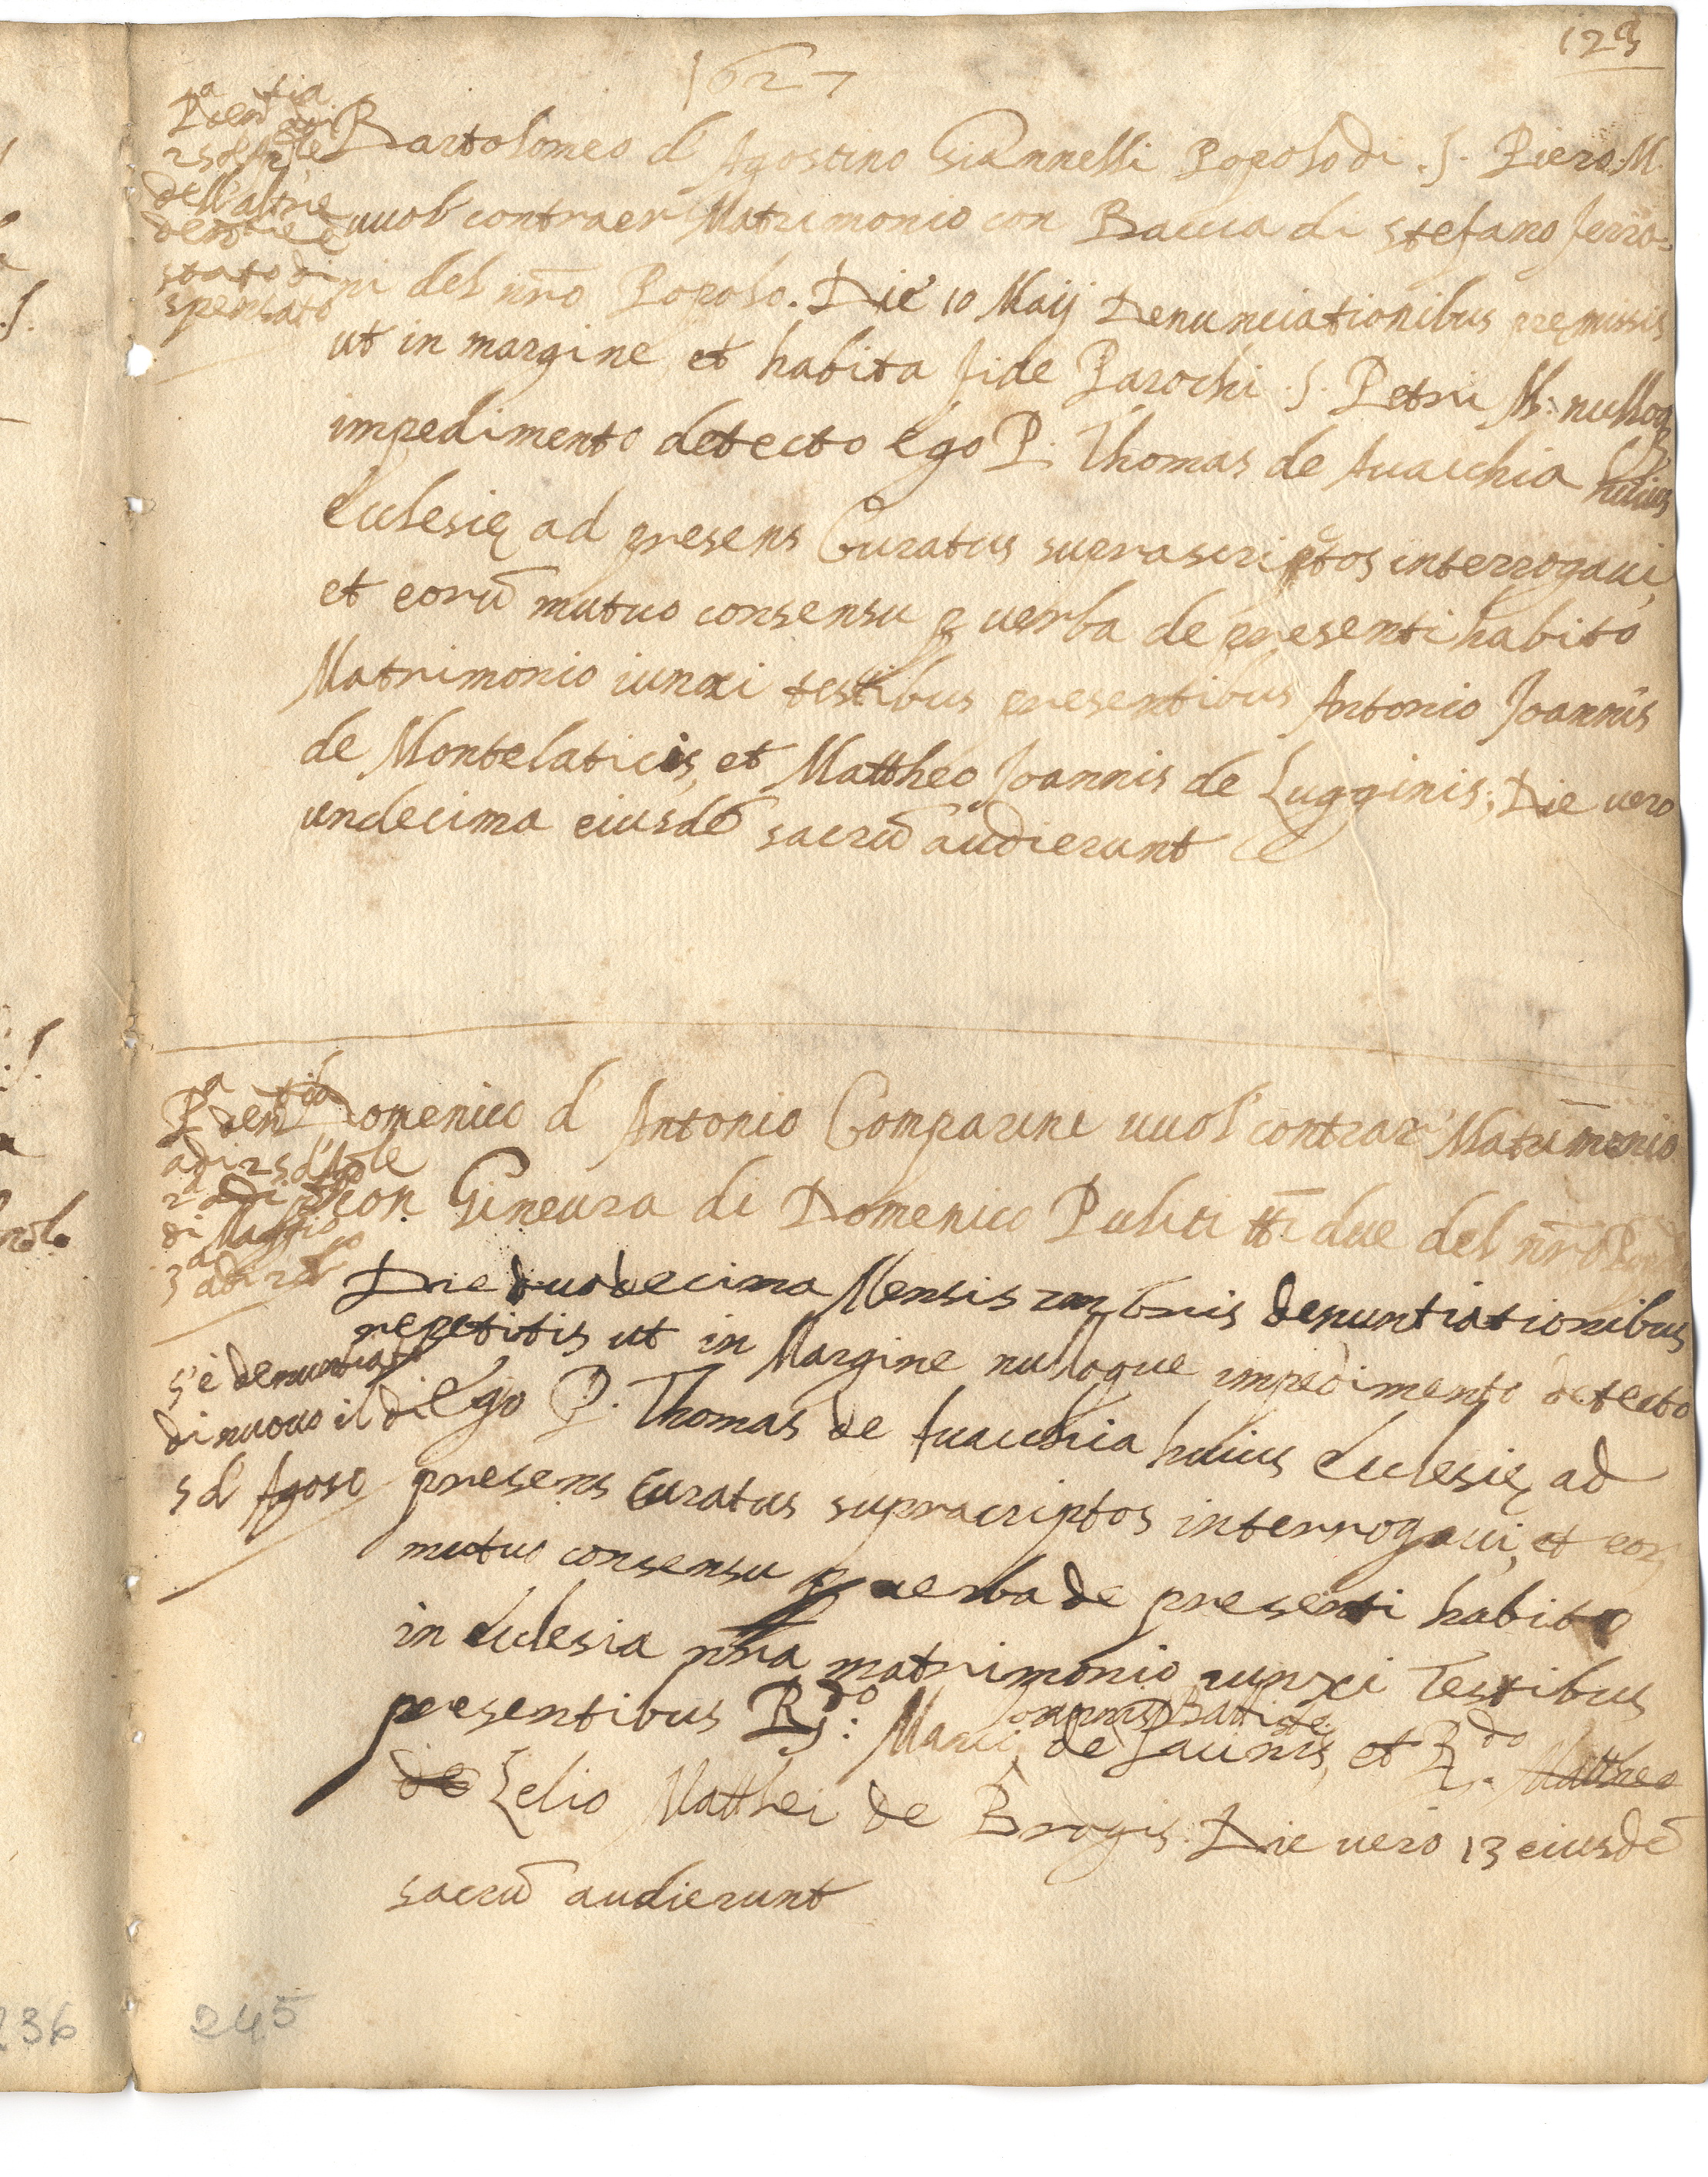 123
1627
Pa dentia adi
25 d'Aple
dell'altre
dentie è
stato di
spensato
Bartolomeo d' Agostino Giannelli Popolo di .S. Piero. M.
vuol' contraer' Matrimonio con Baccia di stefano ferro=
ni del nro Popolo. Die 10 Maij Denunciationibus premissis
ut in margine et habita fide Parochi .S. Petri M. nulloq
impedimento detecto ego P. Thomas de Auacchia huius
Ecclesię ad presens Curatus suprascriptos interrogaui,
et eorū mutuo consensu p uerba de presenti habito
Matrimonio iunxi testibus presentibus Antonio Joannis
de Montelaticis, et Mattheo Joannis de Lugginis; Die uero
undecima eiusdē sacrū audierunt
Pa dentia
adi 25 d'Aple
2a adi
di Maggio
3a adi
Domenico d' Antonio Comparini vuol' contrar' Matrimonio
con Gineura di Domenico Puliti tti due del nro
Die duodecima Mensis bris denuntiationibus
repetitis ut in Margine nulloque impedimento detecto
s'è denuntiato
di nuouo il di
5 d' Agosto
Ego P. Thomas de Auacchia huius Ecclesię ad
presens Curatus supracriptos interrogaui, et eor
mutuo consensu p uerba de presenti habito
in Ecclesia nra matrimonio iunxi Testibus
presentibus Rdo: Marci Joannis Battiste de Paurris, et R.do Mattheo
de Lelio Matthei de Brogis. Die uero 13 eiusdē
sacrū audierunt
236
245